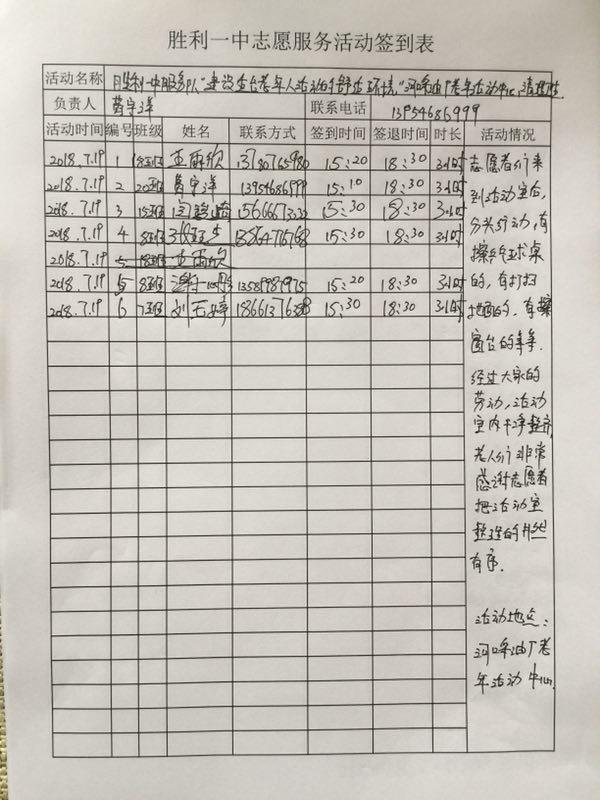 胜利一中志愿服务活动签到表
活动名称 胜利一中服务队"建设
负责人 葛宇洋 联系电话 13954686999
活动时间 编号 班级 姓名 联系方式 签到时间 签退时间 时长 活动情况
2018.7.19 1 18班 王雨欣 15:20 18:30 3小时
2018.7.19 2 20班 葛宇洋 13954686999 15:10 18:30 3小时
2018.7.19 3 15班 15:30 18:30 3小时
2018.7.19 4 8班 15:30 18:30 3小时
2018.7.19 5 18班 王雨欣
2018.7.19 5 8班 13589987975 15:20 18:30 3小时
2018.7.19 6 7班 15:30 18:30 3小时
志愿者们来
到活动室后,
分头行动,有
擦乒乓球桌
的,有打扫
地面的,有擦
窗台的等等.
经过大家的
劳动,活动
室内干净整齐,
老人们非常
感谢志愿者
把活动室
整理的井然
有序.
活动地点:
老
年活动中心.